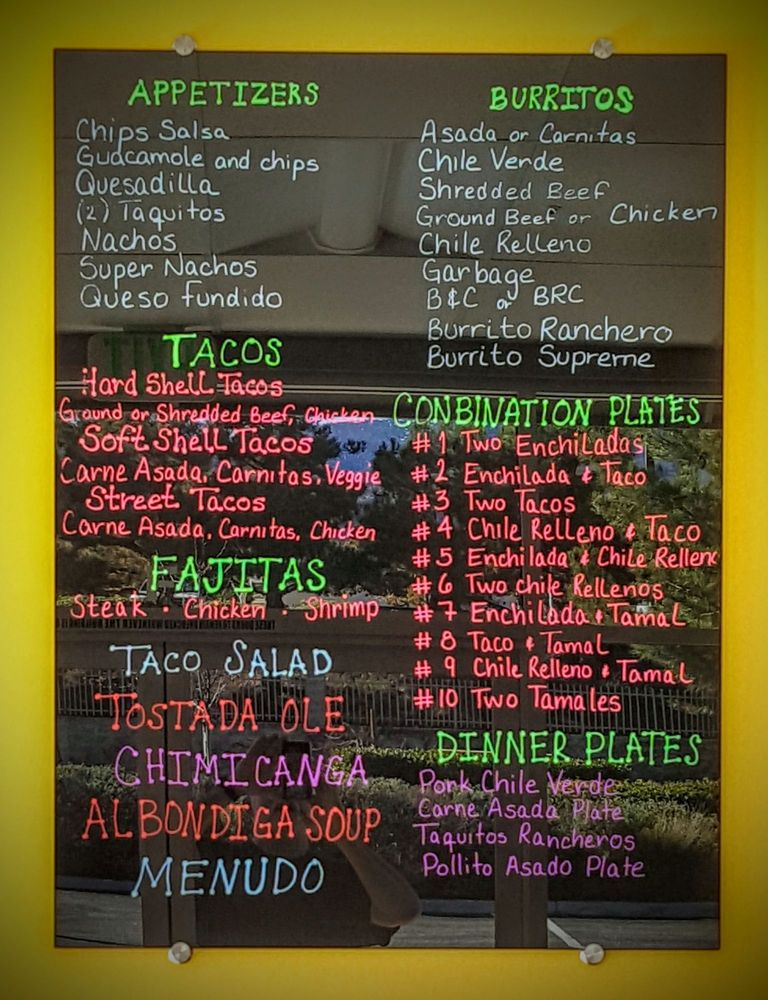 APPETIZERS
Chips Salsa
Guacamole and chips
Quesadilla
(2) Taquitos
Nachos
Super Nachos
Queso fundido
TACOS
Hard Shell Tacos
Ground or Shredded Beef, Chicken
Soft Shell Tacos
Carne Asada, Carnitas, Veggie
Street Tacos
Carne Asada, Carnitas, Chicken
FAJITAS
Steak · Chicken · Shrimp
TACO SALAD
TOSTADA OLE
CHIMICANGA
ALBONDIGA SOUP
MENUDO
BURRITOS
Asada or Carnitas
Chile Verde
Shredded Beef
Ground Beef or Chicken
Chile Relleno
Garbage
B&C or BRC
Burrito Ranchero
Burrito Supreme
CONBINATION PLATES
#1 Two Enchiladas
#2 Enchilada & Taco
#3 Two Tacos
#4 Chile Relleno & Taco
#5 Enchilada & Chile Relleno
#6 Two chile Rellenos
#7 Enchilada & Tamal
#8 Taco & Tamal
#9 Chile Relleno & Tamal
#10 Two Tamales
DINNER PLATES
Pork Chile Verde
Carne Asada Plate
Taquitos Rancheros
Pollito Asado Plate